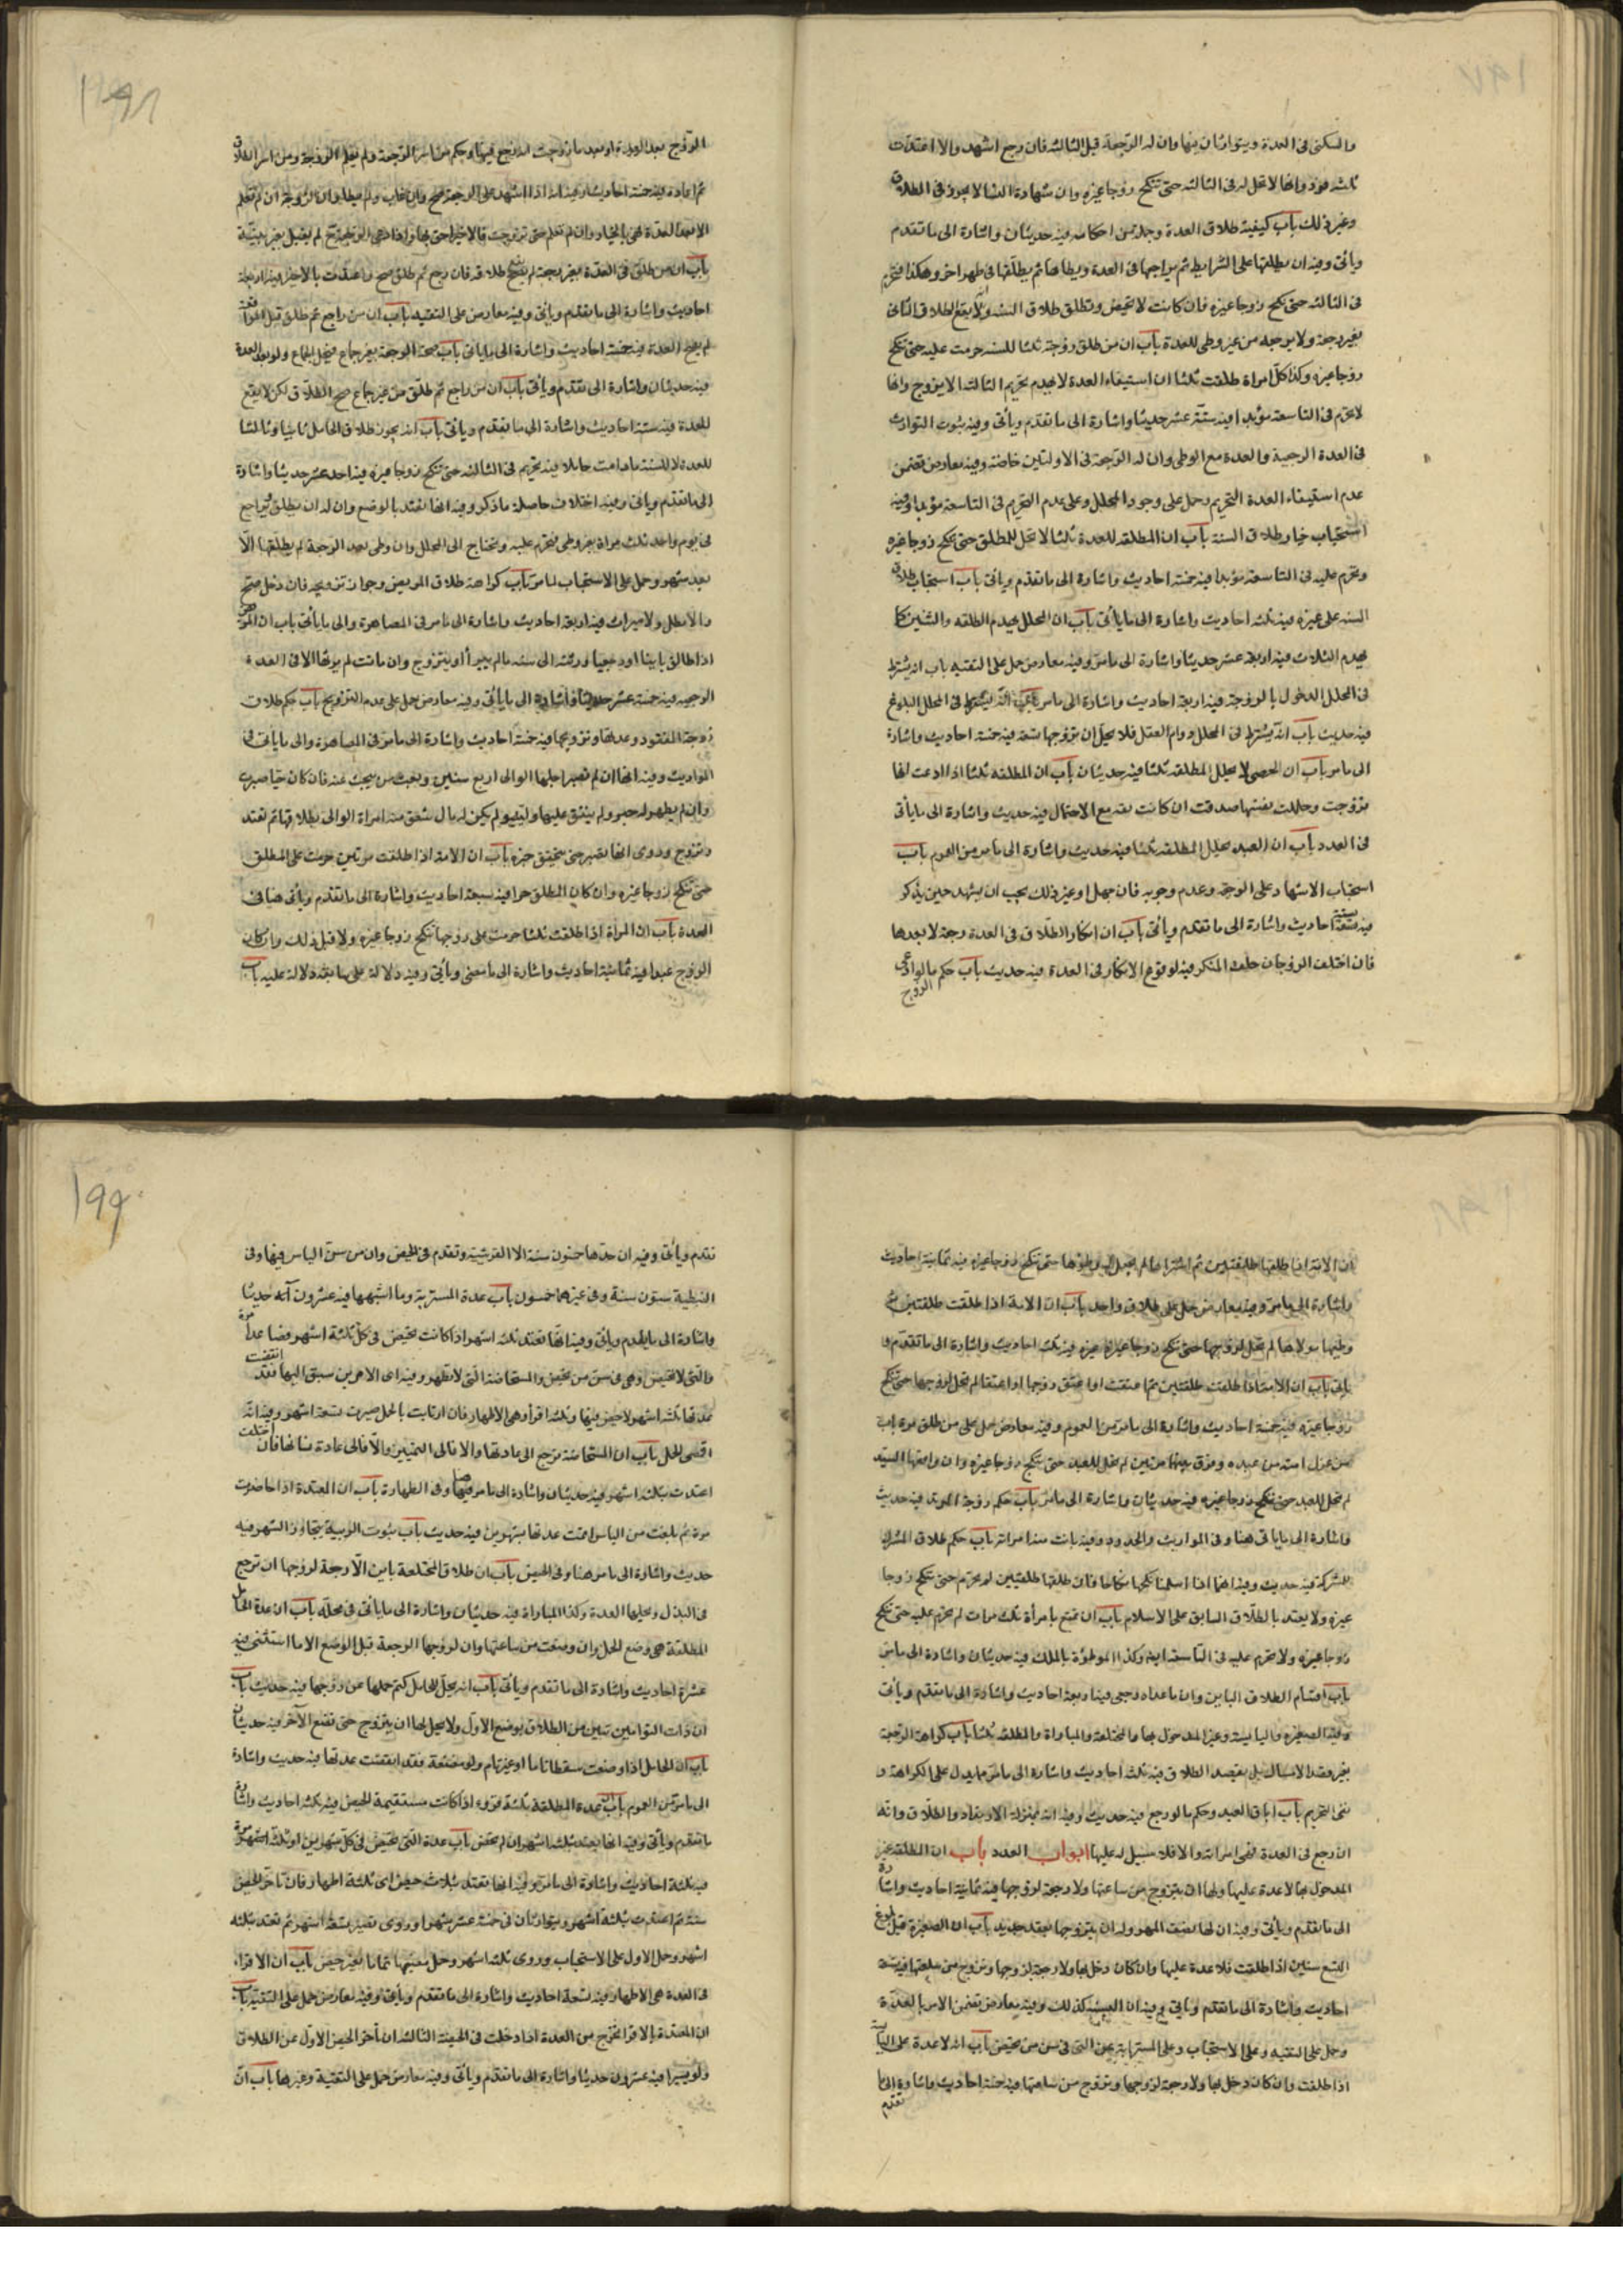 والسكنى فى العدة ويتوارثان فيها وان له الرجعة قبل الثالثة فان رجع اشهد والا اعتدت
ثلثه قروء وانها لا تحل له فى الثالثه حتى تنكح زوجا غيره وان شهادة النسا لا يجوز فى الطلاق
وغير ذلك باب كيفية طلاق العدة وجملة من احكامه فيه حديثان واشارة الى ما تقدم
وياتى وفيه ان يطلقها على الشرايط ثم يراجعها فى العدة ويطاها ثم يطلقها فى طهر اخر وهكذا فتحرم
فى الثالثه حتى تنكح زوجا غيره فان كانت لا تحيض وتطلق طلاق السنه ولا يقع الطلاق الثانى
بغير رجعة ولا يراجعه من غير وطى للعدة باب ان من طلق زوجته ثلثا للسنه حرمت عليه حتى تنكح
زوجا غيره وكذا كل امراة طلقت ثلثا ان استيفاء العدة لا يهدم تحريم الثالثه الا بزوج وانها
لا تحرم فى التاسعة مؤبدا فيه ستة عشر حديثا واشارة الى ما تقدم وياتى وفيه ثبوت التوارث
فى العدة الرجعية والعدة مع الوطى وان له الرجعة فى الاولتين خاصة وفيه معارض تضمن
عدم استيفاء العدة التحريم وحمل على وجود المحلل وعلى عدم التحريم فى التاسعة مؤبدا وفيه
استحباب خيار طلاق السنة باب ان المطلقه للعدة ثلثا لا تحل للمطلق حتى تنكح زوجا غيره
وتحرم عليه فى التاسعة مؤبدا فيه خمسة احاديث واشارة الى ما تقدم وياتى باب استحباب طلاق
السنه على غيره فيه ثلثه احاديث واشارة الى ما ياتى باب ان المحلل يهدم الطلقه والثنتين كما
يهدم الثلاث فيه اربعة عشر حديثا واشارة الى ما مر وفيه معارض حمل على التقيه باب انه يشترط
فى المحلل الدخول بالزوجة فيه اربعة احاديث واشارة الى ما مر باب انه يشترط فى المحلل البلوغ
فيه حديث باب انه يشترط فى المحلل دوام العقد فلا يحل ان تزوجها متعة فيه خمسة احاديث واشارة
الى ما مر باب ان الخصى لا يحلل المطلقه ثلثا فيه حديثان باب ان المطلقه ثلثا اذا ادعت انها
تزوجت وحللت نفسها صدقت ان كانت ثقه مع الاحتمال فيه حديث واشارة الى ما ياتى
فى العدد باب ان العبد يحلل المطلقه ثلثا فيه حديث واشارة الى ما مر من العموم باب
استحباب الاشهاد على الرجعة وعدم وجوبه فان جهل او غير ذلك يجب ان يشهد حين يذكر
فيه سبعة احاديث واشارة الى ما تقدم وياتى باب ان انكار الطلاق فى العدة رجعة لا بعدها
فان اختلف الزوجان حلف المنكر فيه لوقوع الانكار فى العدة فيه حديث باب حكم ما لو ادعى
الزوج
١٩٨
الزوج بعد العدة او بعد ما تزوجت انه رجع فيها وحكم من اسر الرجعة ولم يعلم الزوجة ومن اسر الطلاق
ثم اعاده فيه خمسة احاديث وفيه انه اذا اشهد على الرجعة صح وان غاب ولم يبطل وان الزوجة ان لم تعلم
الا بعد العدة فهى بالخيار وان لم تعلم حتى تزوجت فالاخير احق بها واذا ادعى الرجعة لم يقبل بغير بينة
باب ان من طلق فى العدة بغير رجعة لم يصح طلاقه فان رجع ثم طلق صح واعتدت بالاخير فيه اربعة
احاديث واشارة الى ما تقدم وياتى وفيه معارض على التقيه باب ان من راجع ثم طلق قبل المواقعة
لم يصح للعدة فيه خمسة احاديث واشارة الى ما ياتى باب صحة الرجعة بغير جماع فيحل الجماع ولو بعد العدة
فيه حديثان واشارة الى تقدم وياتى باب ان من راجع ثم طلق من غير جماع صح الطلاق لكن لا يقع
للعدة فيه ستة احاديث واشارة الى ما تقدم وياتى باب انه يجوز طلاق الحامل ثانيا وثالثا
للعدة لا للسنة ما دامت حاملا فيه تحريم فى الثالثه حتى تنكح زوجا غيره فيه احد عشر حديثا واشارة
الى ما تقدم وياتى وفيه اختلاف حاصله ما ذكر وفيه انها تعتد بالوضع وان له ان يطلق ثم يراجع
فى يوم واحد ثلث مراة بغير وطى فتحرم عليه وتحتاج الى المحلل وان وطى بعد الرجعة لم يطلقها الا
بعد شهر وحمل على الاستحباب لما مر باب كراهة طلاق المريض وجواز تزويجه فان دخل صح
والا بطل ولا ميراث فيه اربعة احاديث واشارة الى ما مر فى المصاهرة والى ما ياتى باب ان المريض
اذا طلق باينا او رجعيا ورثته الى سنه ما لم يبرأ او يتزوج وان ماتت لم يرثها الا فى العدة
الرجعيه فيه خمسة عشر حديثا واشارة الى ما ياتى وفيه معارض حمل على عدم التزويج باب حكم طلاق
زوجة المفقود وعدتها وتزويجها فيه خمسة احاديث واشارة الى ما مر فى المصاهرة والى ما ياتى فى
المواريث وفيه انها ان لم تصبر اجلها الوالى اربع سنين وبعث من يبحث عنه فان كان حيا صبرت
وان لم يظهر له خبر ولم ينفق عليها وليه ولم يكن له مال ينفق منه امره الوالى بطلاقها ثم تعتد
وتتزوج وروى انها تصبر حتى يتحقق خبره باب ان الامة اذا طلقت مرتين حرمت على المطلق
حتى تنكح زوجا غيره وان كان المطلق حرا فيه سبعة احاديث واشارة الى ما تقدم وياتى هنا وفى
العدة باب ان المراة اذا طلقت ثلثا حرمت على زوجها حتى تنكح زوجا غيره ولا قبل ذلك وان كان
الزوج عبدا فيه ثمانية احاديث واشارة الى ما مضى وياتى وفيه دلالة على ما تقدم دلالة عليه باب
ان الامة اذا طلقها طلقتين ثم اشتراها لم يحل له وطؤها حتى تنكح زوجا غيره فيه ثمانية احاديث
واشارة الى ما مر وفيه معارض حمل على طلاق واحد باب ان الامة اذا طلقت طلقتين ثم
وطئها مولاها لم تحل لزوجها حتى تنكح زوجا غيره فيه ثلثه احاديث واشارة الى ما تقدم و
ياتى باب ان الامة اذا طلقت طلقتين ثم اعتقت او اعتق زوجها او اعتقا لم تحل لزوجها حتى تنكح
زوجا غيره فيه خمسة احاديث واشارة الى ما مر من العموم وفيه معارض حمل على من طلق مرة باب
من عزل امته من عبده وفرق بينهما مرتين لم تحل للعبد حتى تنكح زوجا غيره وان واقعها السيد
لم تحل للعبد حتى تنكح زوجا غيره فيه حديثان واشارة الى ما مر باب حكم زوجة المرتد فيه حديث
واشارة الى ما ياتى هنا وفى المواريث والحدود وفيه بانت منه امراته باب حكم طلاق المشرك
للمشركة فيه حديث وفيه انهما اذا اسلما نكحها نكاحا فان طلقها طلقتين لم تحرم حتى تنكح زوجا
غيره ولا يعتد بالطلاق السابق على الاسلام باب ان من تمتع بامرأة ثلث مرات لم تحرم عليه حتى تنكح
زوجا غيره ولا تحرم عليه فى التاسعة ايضا وكذا الموطؤة بالملك فيه حديثان واشارة الى ما مر
باب اقسام الطلاق الباين وان ما عداه رجعى فيه اربعة احاديث واشارة الى ما تقدم وياتى
وفيه الصغيره واليايسة وغير المدخول بها والمختلعة والمباراة والمطلقه ثلثا باب كراهة الرجعة
بغير قصد الامساك بل بقصد الطلاق فيه ثلث احاديث واشارة الى ما مر مما يدل على الكراهة و
نفى التحريم باب اباق العبد وحكم ما لو رجع فيه حديث وفيه انه بمنزلة الارتداد والطلاق وانه
ان رجع فى العدة فهى امراته والا فلا سبيل له عليها ابواب العدد باب ان المطلقة غير
المدخول بها لا عدة عليها ولها ان تتزوج من ساعتها ولا رجعة لزوجها فيه ثمانية احاديث واشارة
الى ما تقدم وياتى وفيه ان لها نصف المهر وله ان يتزوجها بعقد جديد باب ان الصغيرة قبل بلوغ
التسع سنين اذا طلقت فلا عدة عليها وان كان دخل بها ولا رجعة لزوجها وتتزوج من ساعتها فيه ستة
احاديث واشارة الى ما تقدم وياتى وفيه ان اليائسة كذلك وفيه معارض تضمن الامر بالعدة
وحمل على التقيه وعلى الاستحباب وعلى المسترابة بمعنى التى فى سن من تحيض باب انه لا عدة على اليائسة
اذا طلقت وان كان دخل بها ولا رجعة لزوجها وتتزوج من ساعتها فيه خمسة احاديث واشارة الى ما
تقدم
١٩٩
تقدم وياتى وفيه ان حدها خمسون سنة الا القرشية وتقدم فى الحيض وان من سن الياس فيها وفى
النبطية ستون سنة وفى غيرهما خمسون باب عدة المسترابة وما اشبهها فيه عشرون حديثا
واشارة الى ما تقدم وياتى وفيه انها تعتد ثلثه اشهر اذا كانت تحيض فى كل ثلثة اشهر فصاعدا مرة
والتى لا تحيض وهى فى سن من تحيض والمستحاضة التى لا تطهر وفيه اى الامرين سبق اليها فقد انقضت
عدتها ثلثه اشهر لا حيض فيها وثلثه اقرأ وهى الاطهار فان ارتابت بالحمل صبرت تسعة اشهر وفيه انه
اقصى الحمل باب ان المستحاضة ترجع الى عادتها والا فالى التمييز والا فالى عادة نسائها فان اختلفت
اعتدت بثلثه اشهر فيه حديثان واشارة الى ما مر فيها وفى الطهارة باب ان المعتدة اذا حاضت
مرة ثم بلغت سن الياس اتمت عدتها بشهرين فيه حديث باب ثبوت الريبة بتجاوز الشهر فيه
حديث واشارة الى ما مر هنا وفى الحيض باب ان طلاق المختلعة باين الا رجعة لزوجها ان ترجع
فى البذل وعليها العدة وكذا المباراة فيه حديثان واشارة الى ما ياتى فى محله باب ان عدة الحامل
المطلقة هى وضع الحمل وان وضعت من ساعتها وان لزوجها الرجعة قبل الوضع الا ما استثنى فيه
عشرة احاديث واشارة الى ما تقدم وياتى باب انه يحل للحامل كتم حملها عن زوجها فيه حديث باب
ان ذات التوامين تبين من الطلاق بوضع الاول ولا يحل لها ان تتزوج حتى تضع الآخر فيه حديثان
باب ان الحامل اذا وضعت سقطا تاما او غير تام ولو مضغة فقد انقضت عدتها فيه حديث واشارة
الى ما مر من العموم باب ان عدة المطلقة ثلثة قروء اذا كانت مستقيمة الحيض فيه ثلثه احاديث واشارة
ما تقدم وياتى وفيه انها تعتد بثلثه اشهر ان لم تحض باب عدة التى تحيض فى كل شهرين او ثلثة اشهر مرة
فيه ثلثة احاديث واشارة الى ما مر وفيه انها تعتد بثلاث حيض اى ثلثة اطهار فان تاخر الحيض
سنة ثم اعتدت بثلثة اشهر ويتوارثان فى خمسة عشر شهرا وروى تصبر تسعة اشهر ثم تعتد بثلثه
اشهر وحمل الاول على الاستحباب وروى ثلثه اشهر وحمل بمضيها تماما بغير حيض باب ان الاقراء
فى العدة هى الاطهار فيه تسعة احاديث واشارة الى ما تقدم وياتى وفيه معارض حمل على التقية باب
ان المعتدة بالاقرا تخرج من العدة اذا دخلت فى الحيضة الثالثة ان تأخر الحيض الاول عن الطلاق
ولو يسيرا فيه عشرون حديثا واشارة الى ما تقدم وياتى وفيه معارض حمل على التقية وغيرها باب ان